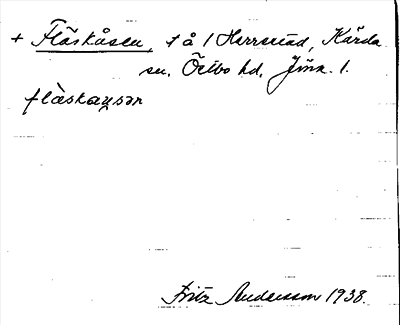 + Flåskåsen, t å 1 Herrestad, Kärda
sn. Östbo hd. Jönk. l.
flåskaɯsən
Fritz Andersson 1938.